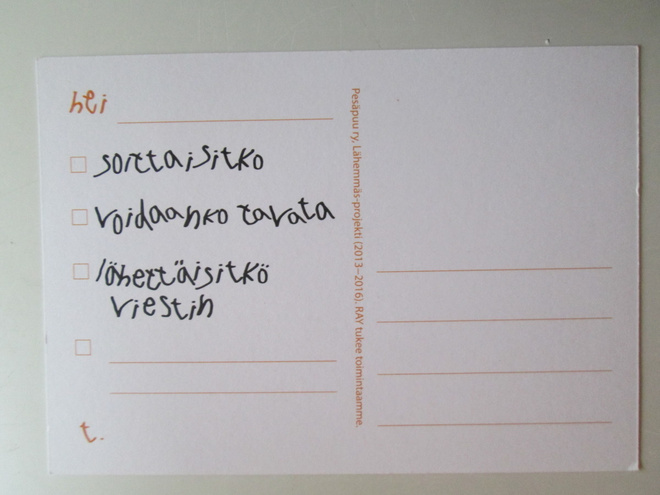 hei
soittaisitko
voidaanko tavata
lähettäisitkö
viestin
t.
Pesäpuu ry, Lähemmäs-projekti (2013–2016). RAY tukee toimintaamme.